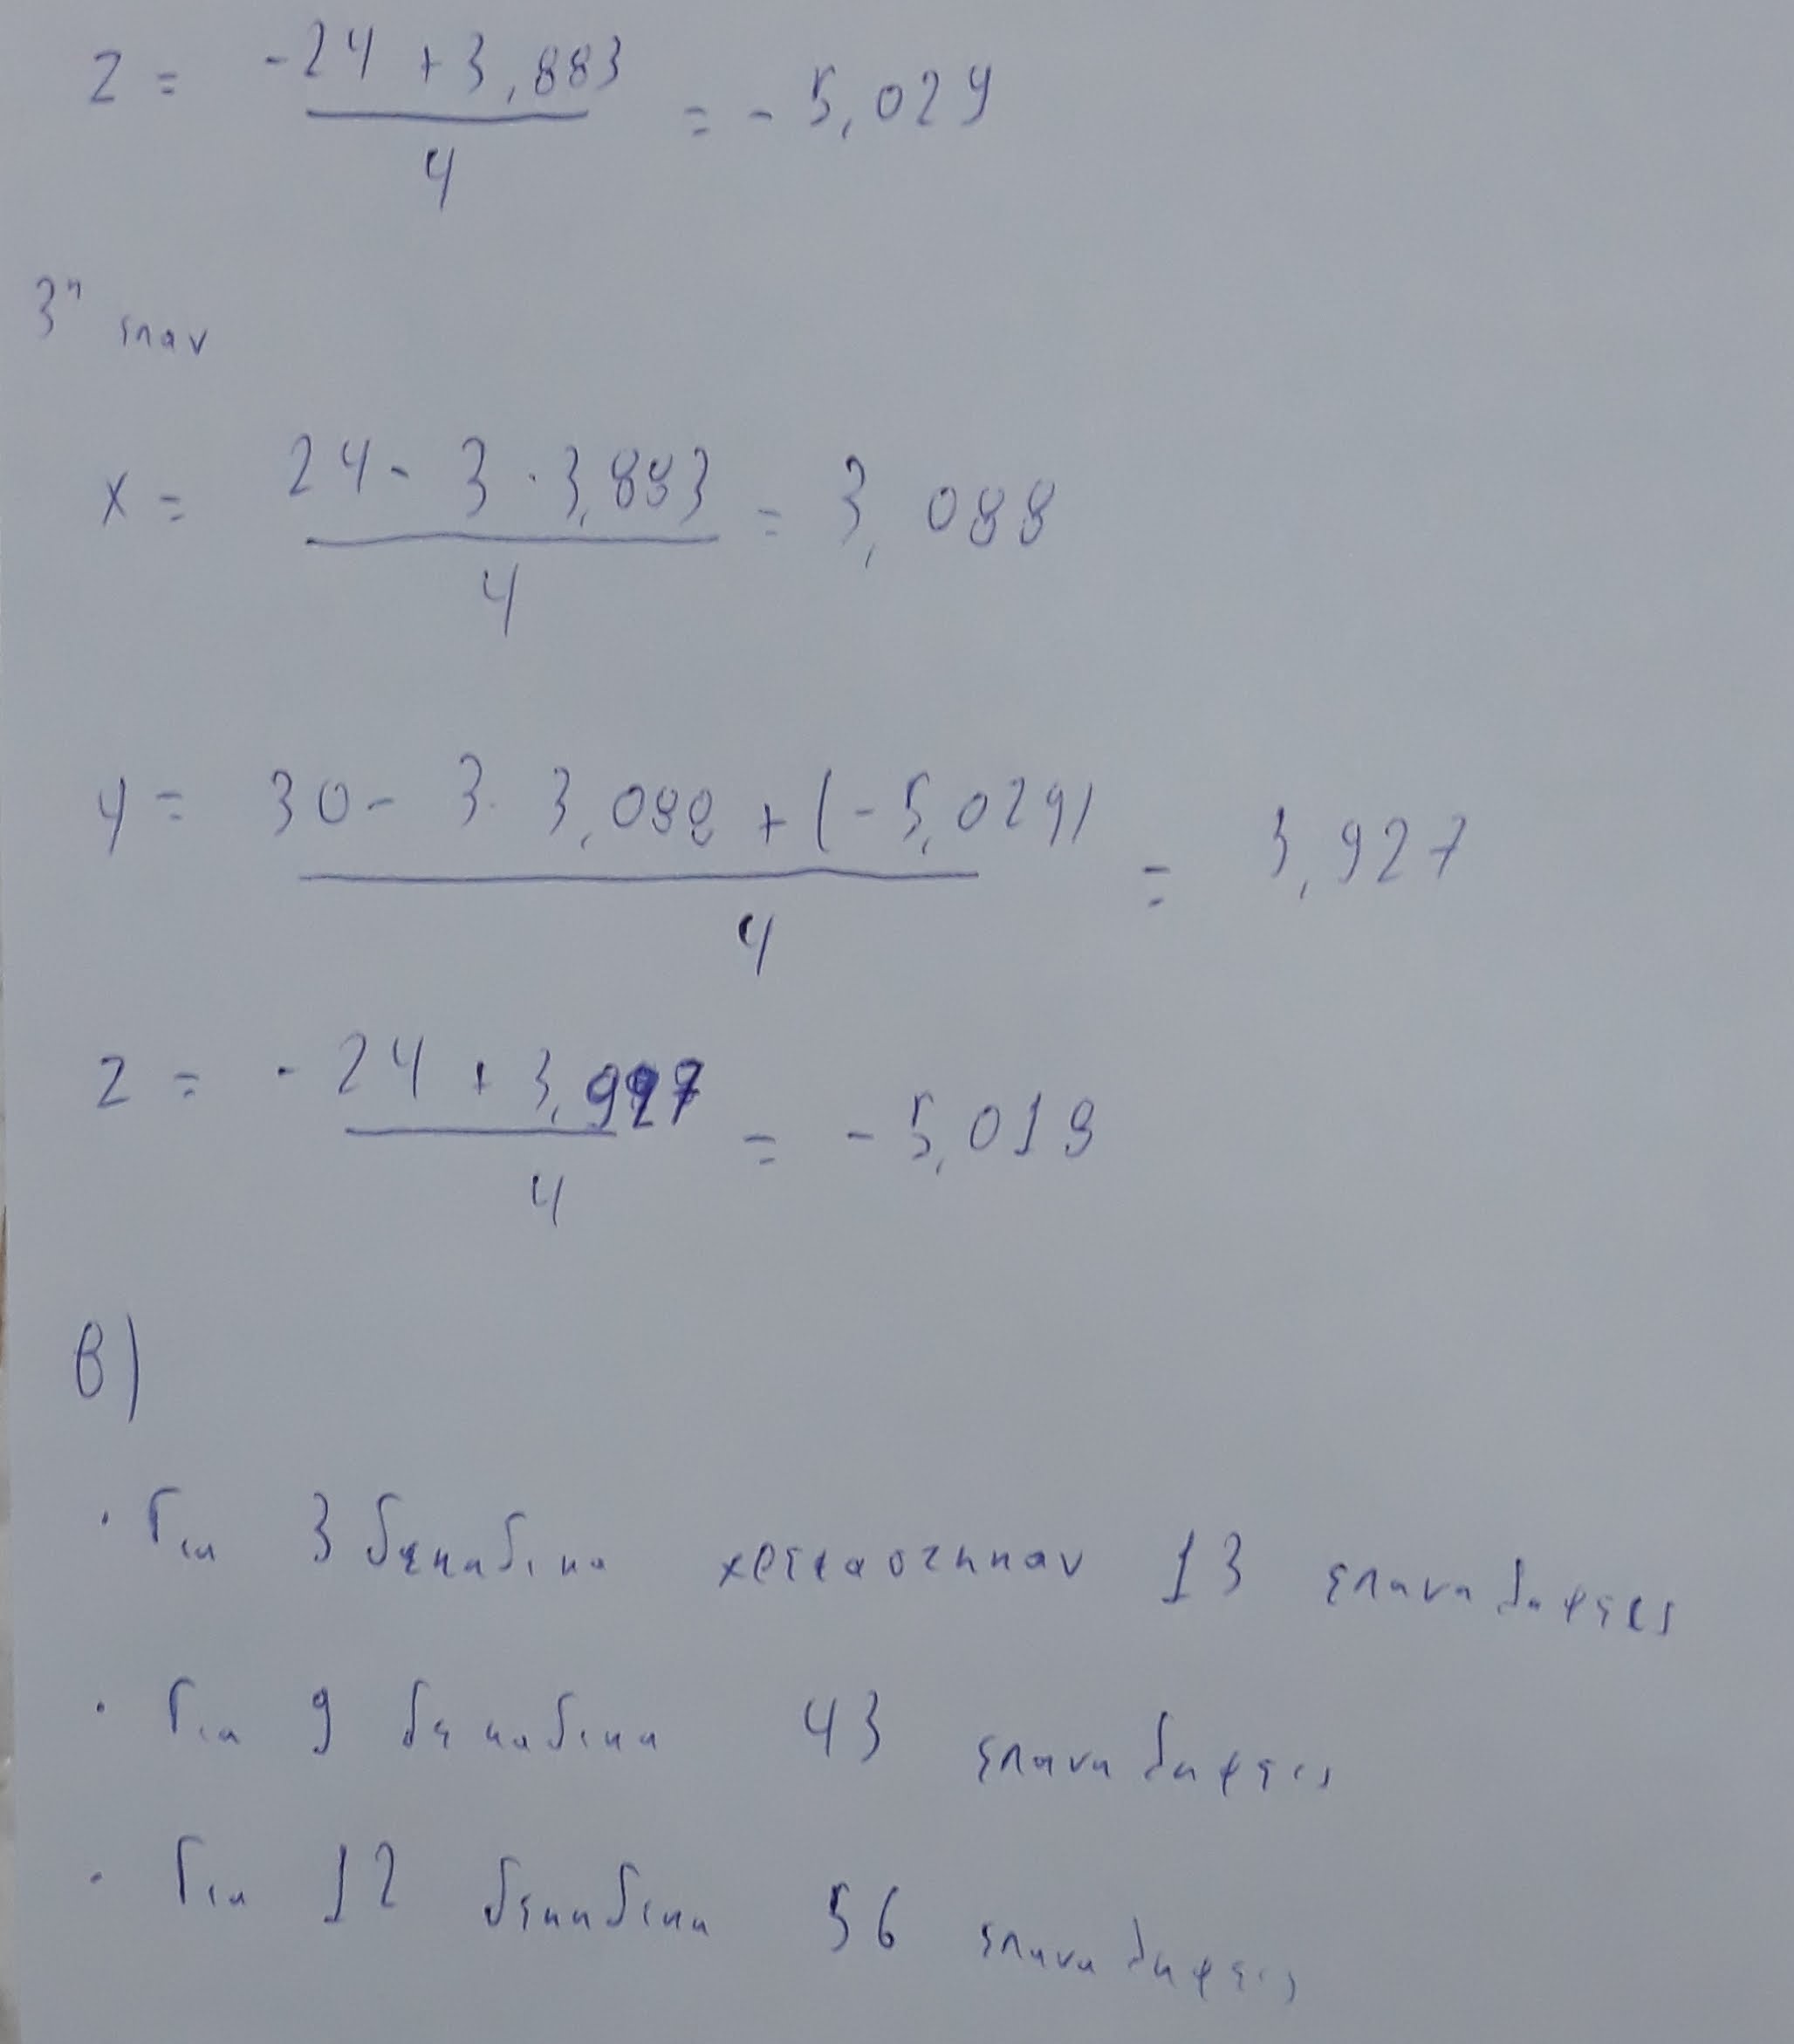 z = (-24 + 3,883) / 4 = -5,029
3η επαν
x = (24 - 3 · 3,883) / 4 = 3,088
y = (30 - 3 · 3,088 + (-5,029)) / 4 = 3,927
z = (-24 + 3,927) / 4 = -5,018
β)
· Για 3 δεκαδικα χρειαστηκαν 13 επαναληψεις
· Για 9 δεκαδικα 43 επαναληψεις
· Για 12 δεκαδικα 56 επαναληψεις